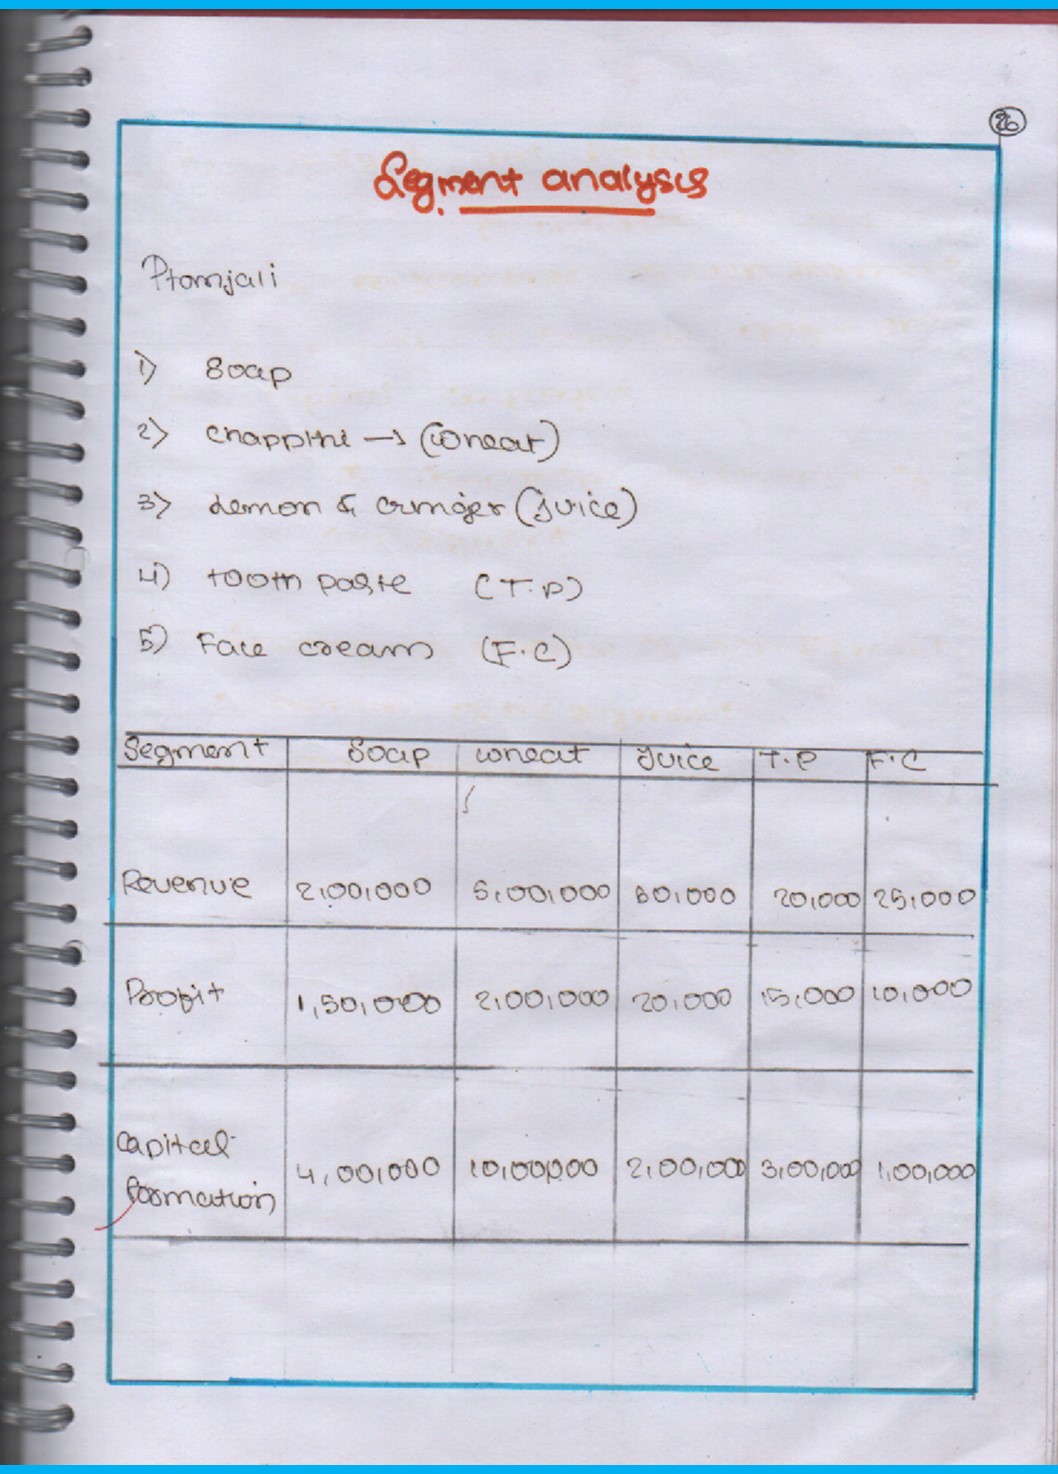 26
Segment analysis
Ptanjali
1) Soap
2) Chappthi → (wheat)
3) Lemon & Ginger (juice)
4) tooth paste (T.P)
5) Face cream (F.C)
Segment Soap wheat Juice T.P F.C
Revenue 2,00,000 5,00,000 80,000 20,000 25,000
Profit 1,50,000 2,00,000 20,000 15,000 10,000
Capital formation 4,00,000 10,00,000 2,00,000 3,00,000 1,00,000